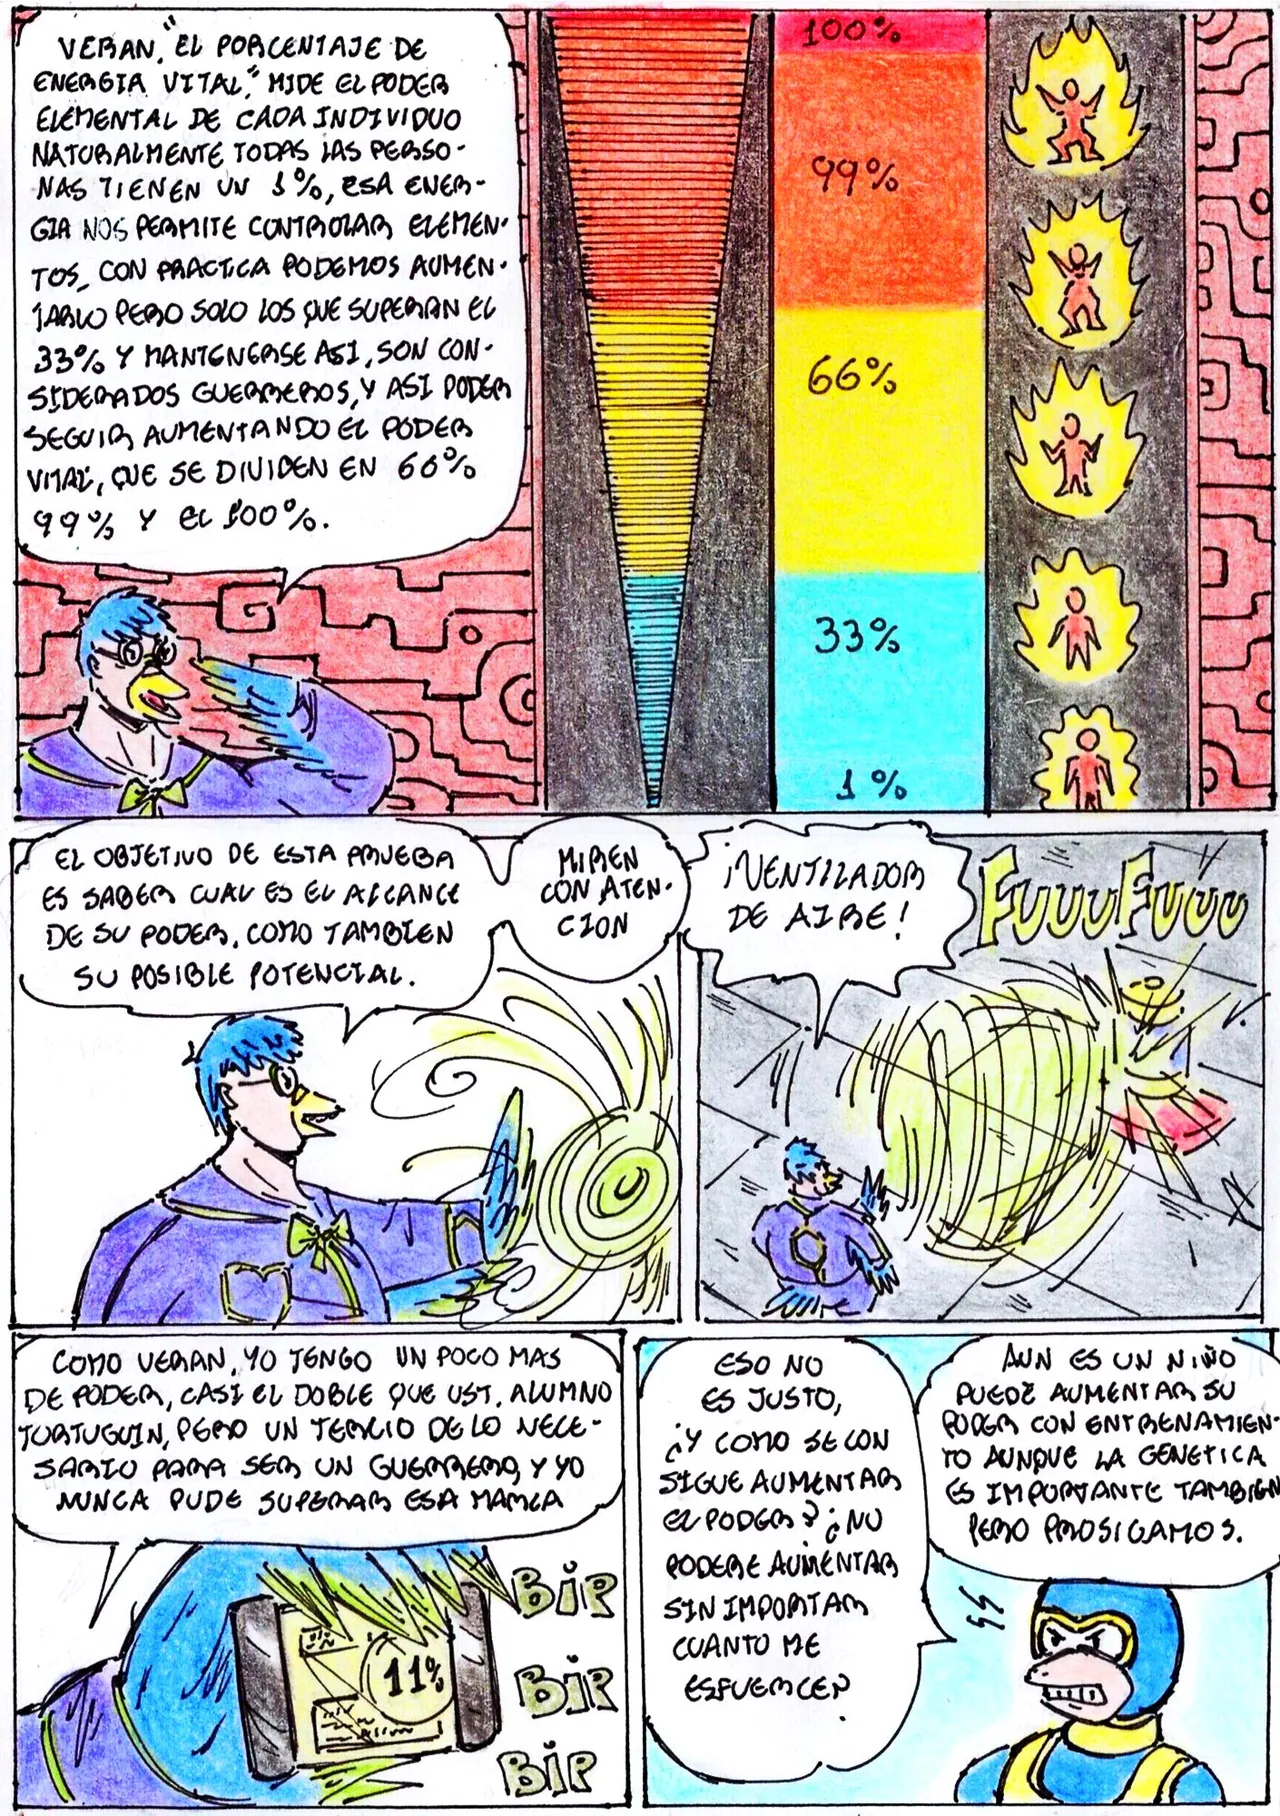 VERAN, "EL PORCENTAJE DE
ENERGIA VITAL," MIDE EL PODER
ELEMENTAL DE CADA INDIVIDUO
NATURALMENTE TODAS LAS PERSO-
NAS TIENEN UN 1%, ESA ENER-
GIA NOS PERMITE CONTROLAR ELEMEN-
TOS, CON PRACTICA PODEMOS AUMEN-
TARLO PERO SOLO LOS QUE SUPERAN EL
33% Y MANTENERSE ASI, SON CON-
SIDERADOS GUERREROS, Y ASI PODER
SEGUIR AUMENTANDO EL PODER
VITAL, QUE SE DIVIDEN EN 66%
99% Y EL 100%.
100%
99%
66%
33%
1%
EL OBJETIVO DE ESTA PRUEBA
ES SABER CUAL ES EL ALCANCE
DE SU PODER, COMO TAMBIEN
SU POSIBLE POTENCIAL.
MIREN
CON ATEN-
CION
¡VENTILADOR
DE AIRE!
FUUUFUUU
COMO VERAN, YO TENGO UN POCO MAS
DE PODER, CASI EL DOBLE QUE UST. ALUMNO
TORTUGUIN, PERO UN TERCIO DE LO NECE-
SARIO PARA SER UN GUERRERO, Y YO
NUNCA PUDE SUPERAR ESA MARCA
11%
BIP
BIP
BIP
ESO NO
ES JUSTO,
¿Y COMO SE CON
SIGUE AUMENTAR
EL PODER? ¿NO
PODERE AUMENTAR
SIN IMPORTAR
CUANTO ME
ESFUERCE?
AUN ES UN NIÑO
PUEDE AUMENTAR SU
PODER CON ENTRENAMIEN-
TO AUNQUE LA GENETICA
ES IMPORTANTE TAMBIEN
PERO PROSIGAMOS.